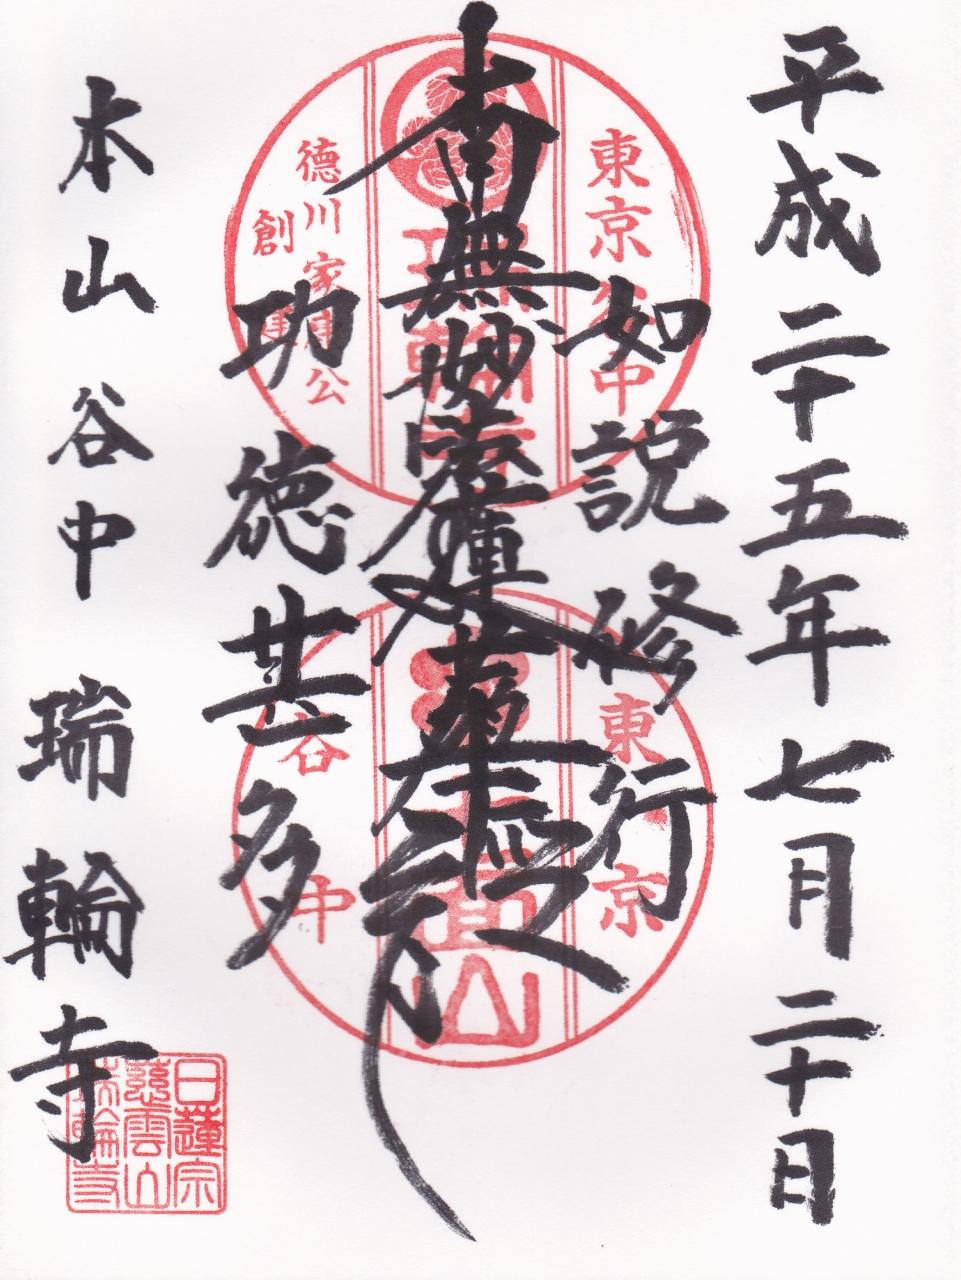 平成二十五年七月二十日
如説修行
南無妙法蓮華経
功徳甚多
本山 谷中 瑞輪寺
東京谷中
瑞輪寺
徳川家康公
創建
東京
山
谷中
日蓮宗
慈雲山
瑞輪寺